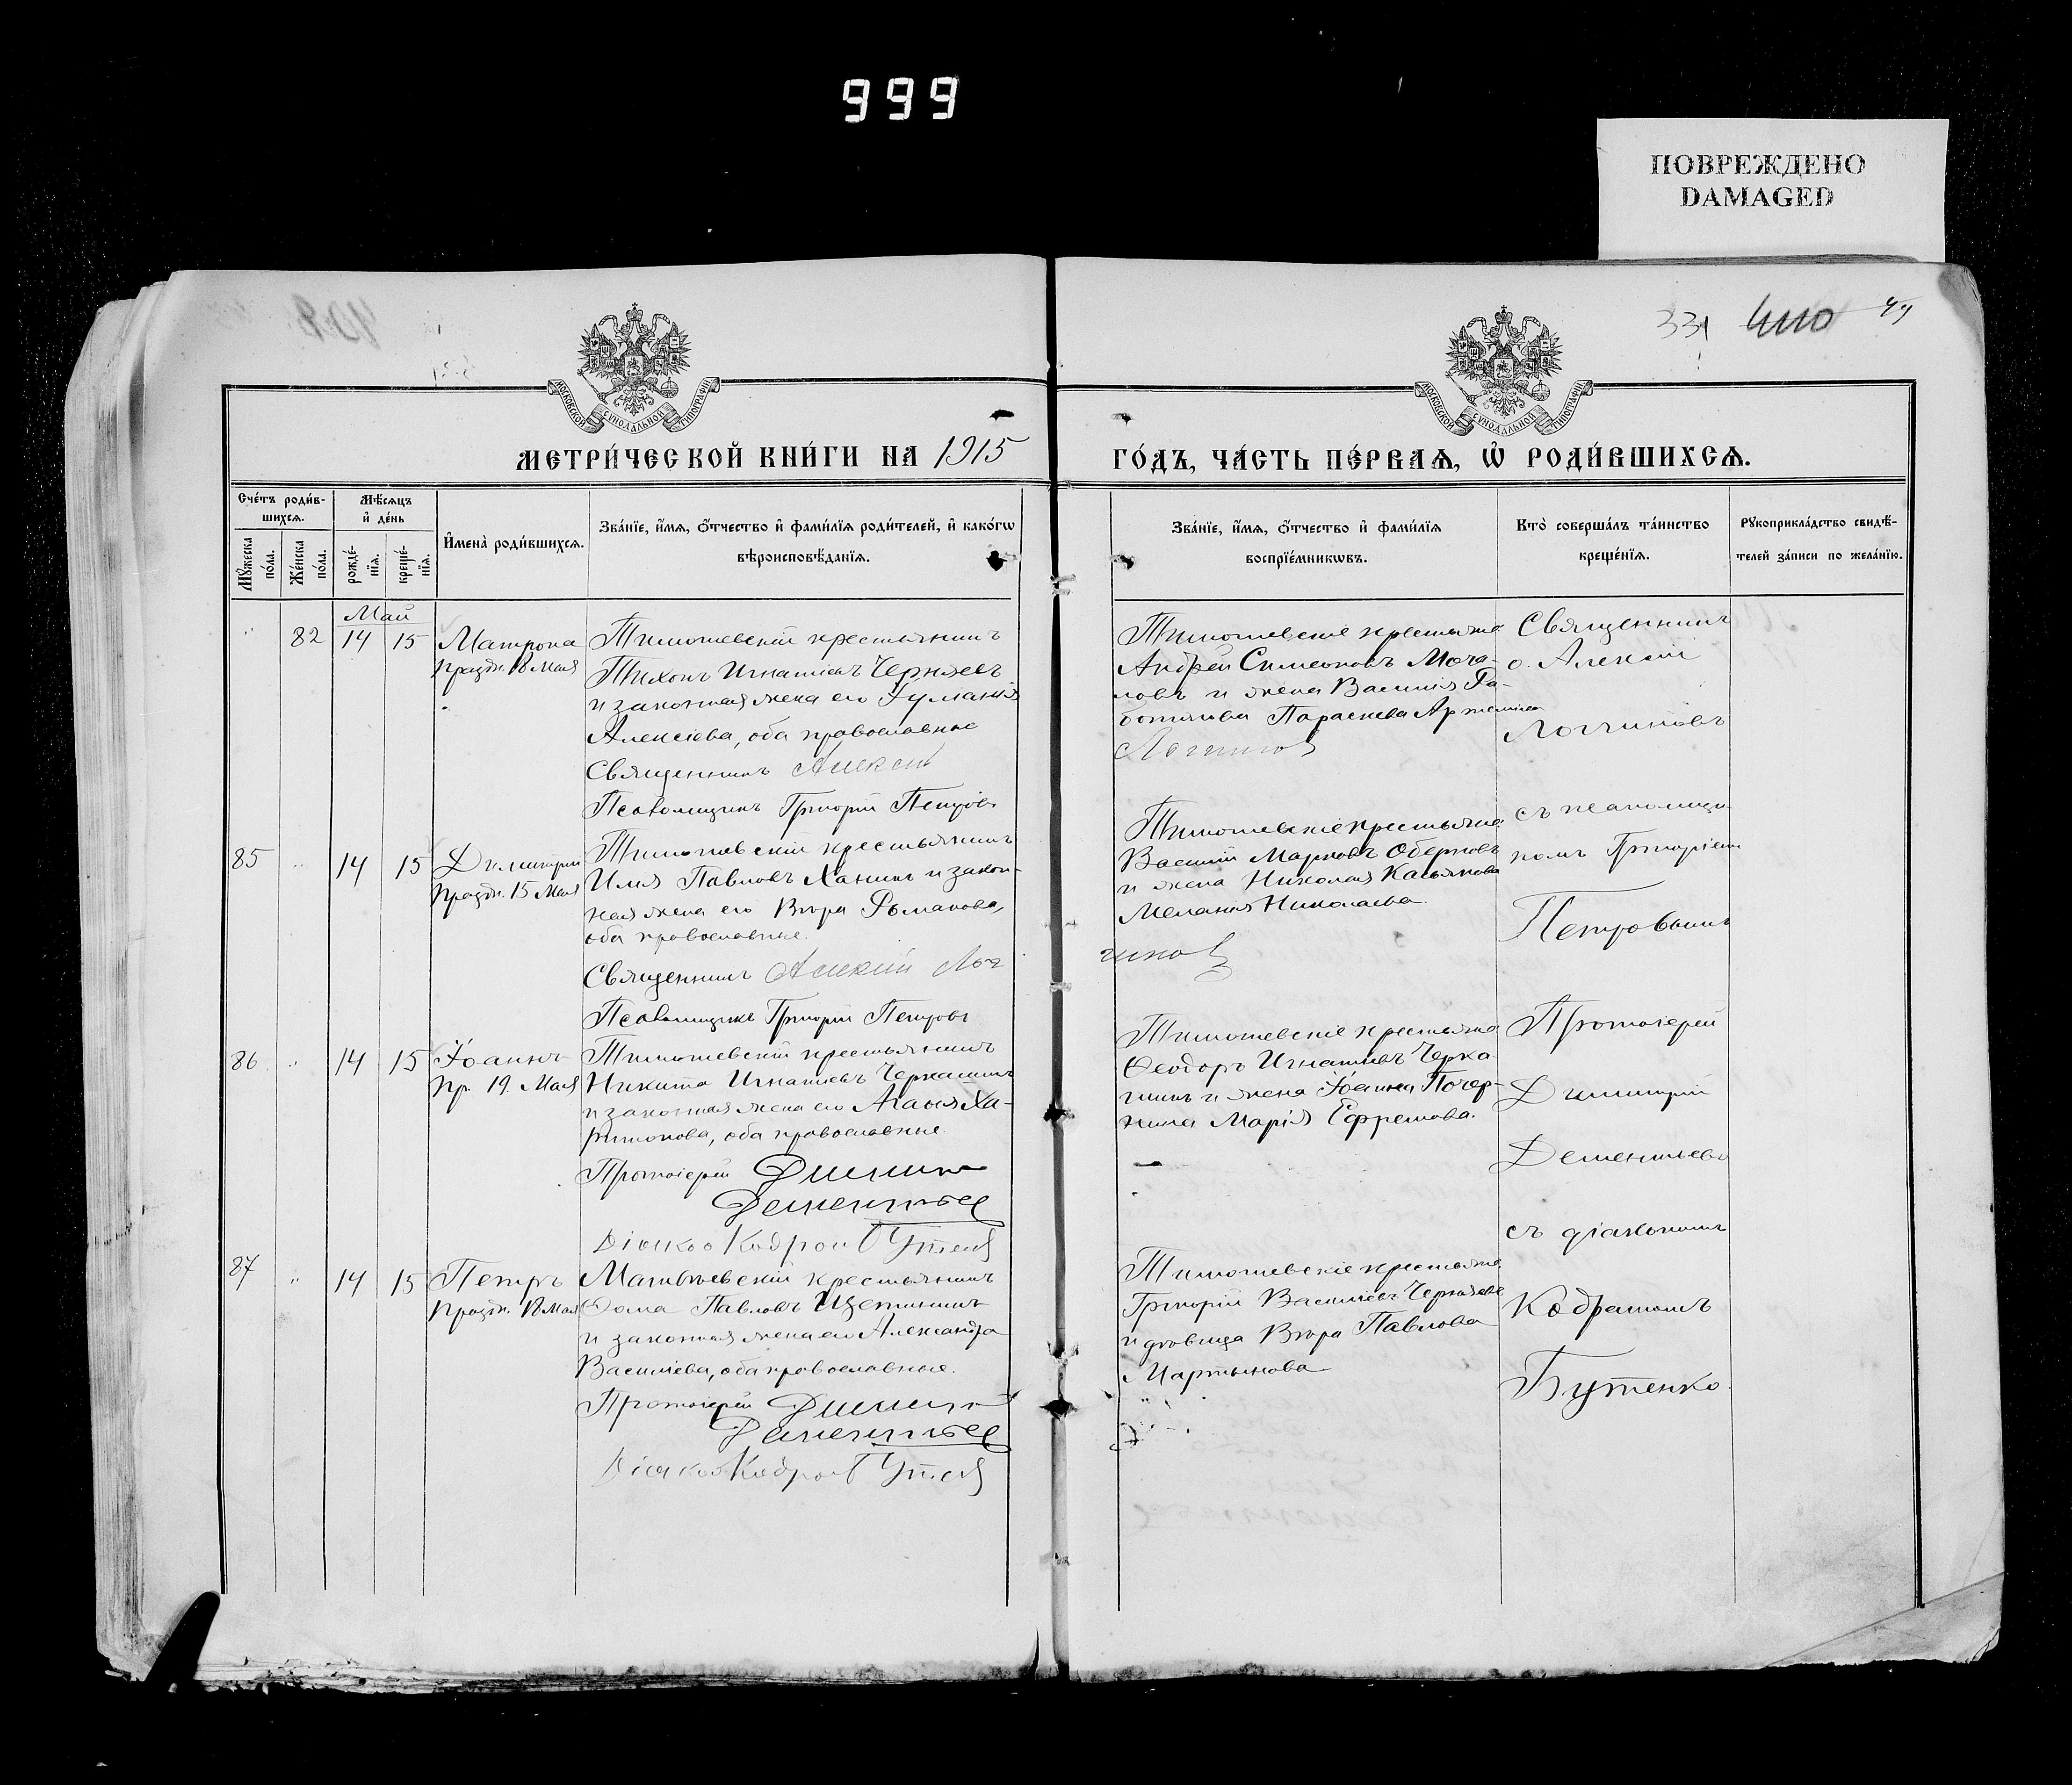 999
ПОВРЕЖДЕНО
DAMAGED
331
МОСКОВСКОЙ СУНОДАЛЬНОЙ ТИПОГРАФІИ
МОСКОВСКОЙ СУНОДАЛЬНОЙ ТИПОГРАФІИ
МЕТРИ́ЧЕСКОЙ КНИ́ГИ НА 1915
ГО́ДЪ, ЧА́СТЬ ПЕ́РВАѦ, Ѡ РОДИ́ВШИХСѦ.
Сче́тъ роди́в-
шихсѧ.
Мꙋ́жеска по́ла.
Же́нска по́ла.
Мѣ́сѧцъ
и҆ де́нь
рожде́-
нїѧ.
креще́-
нїѧ.
И҆мена̀ роди́вшихсѧ.
Зва́нїе, и҆́мѧ, ѻ҆́тчество и҆ фами́лїѧ роди́телей, и҆ како́гѡ
вѣроисповѣ́данїѧ.
Зва́нїе, и҆́мѧ, ѻ҆́тчество и҆ фами́лїѧ
воспрїе́мникѡвъ.
Кто̀ соверша́лъ та́инство
креще́нїѧ.
Рꙋкоприкла́дство свидѣ́-
телей за́писи по жела́нїю.
Май
82 14 15 Матрона
Праздн. 18 Мая
Тимошевскій крестьянинъ
Тихонъ Игнатіевъ Черняевъ
и законная жена его Іуліанія
Алексіева, оба православные
Священникъ Алексій
Псаломщикъ Григорій Петровъ
Тимошевскіе крестьяне
Андрей Симеоновъ Моча-
ловъ и жена Василія
Параскева
Логиновъ
Священникъ
о. Алексій
Логгиновъ
85 14 15 Димитрій
Праздн. 15 Мая
Тимошевскій крестьянинъ
Илія Павловъ Ханинъ и закон-
ная жена его Вѣра Романова,
оба православные.
Священникъ Алексій Лог
Псаломщикъ Григорій Петровъ
Тимошевскіе крестьяне
Василій Марковъ
и жена Николая Касьянова
Меланія Николаева.
гиновъ
съ псаломщи-
комъ Григоріемъ
Петровымъ
86 14 15 Іоаннъ
Пр. 19 Мая
Тимошевскій крестьянинъ
Никита Игнатіевъ Черкашинъ
и законная жена его Агаѳія Ха-
ритонова, оба православные.
Протоіерей Димитрій
Дементьевъ
Діаконъ Кодратъ Бутенко
Тимошевскіе крестьяне
Ѳеодоръ Игнатіевъ Черка-
шинъ и жена Іоанна
Марія Ефремова.
Протоіерей
Димитрій
Дементьевъ
87 14 15 Петръ
Праздн. 18 Мая
Матвѣевскій крестьянинъ
Ѳома Павловъ Щетининъ
и законная жена его Александра
Василіева, оба православные.
Протоіерей Димитрій
Дементьевъ
Діаконъ Кодратъ Бутенко
Тимошевскіе крестьяне
Григорій Василіевъ Черняевъ
и вдовица Вѣра Павлова
Мартынова
съ діакономъ
Кодратомъ
Бутенко.